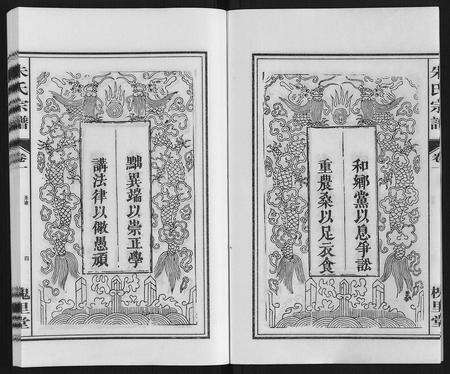 朱氏宗譜
卷一
槐里堂
和鄉黨以息爭訟
重農桑以足衣食
黜異端以崇正學
講法律以儆愚頑
朱氏宗譜
卷一
四
槐里堂